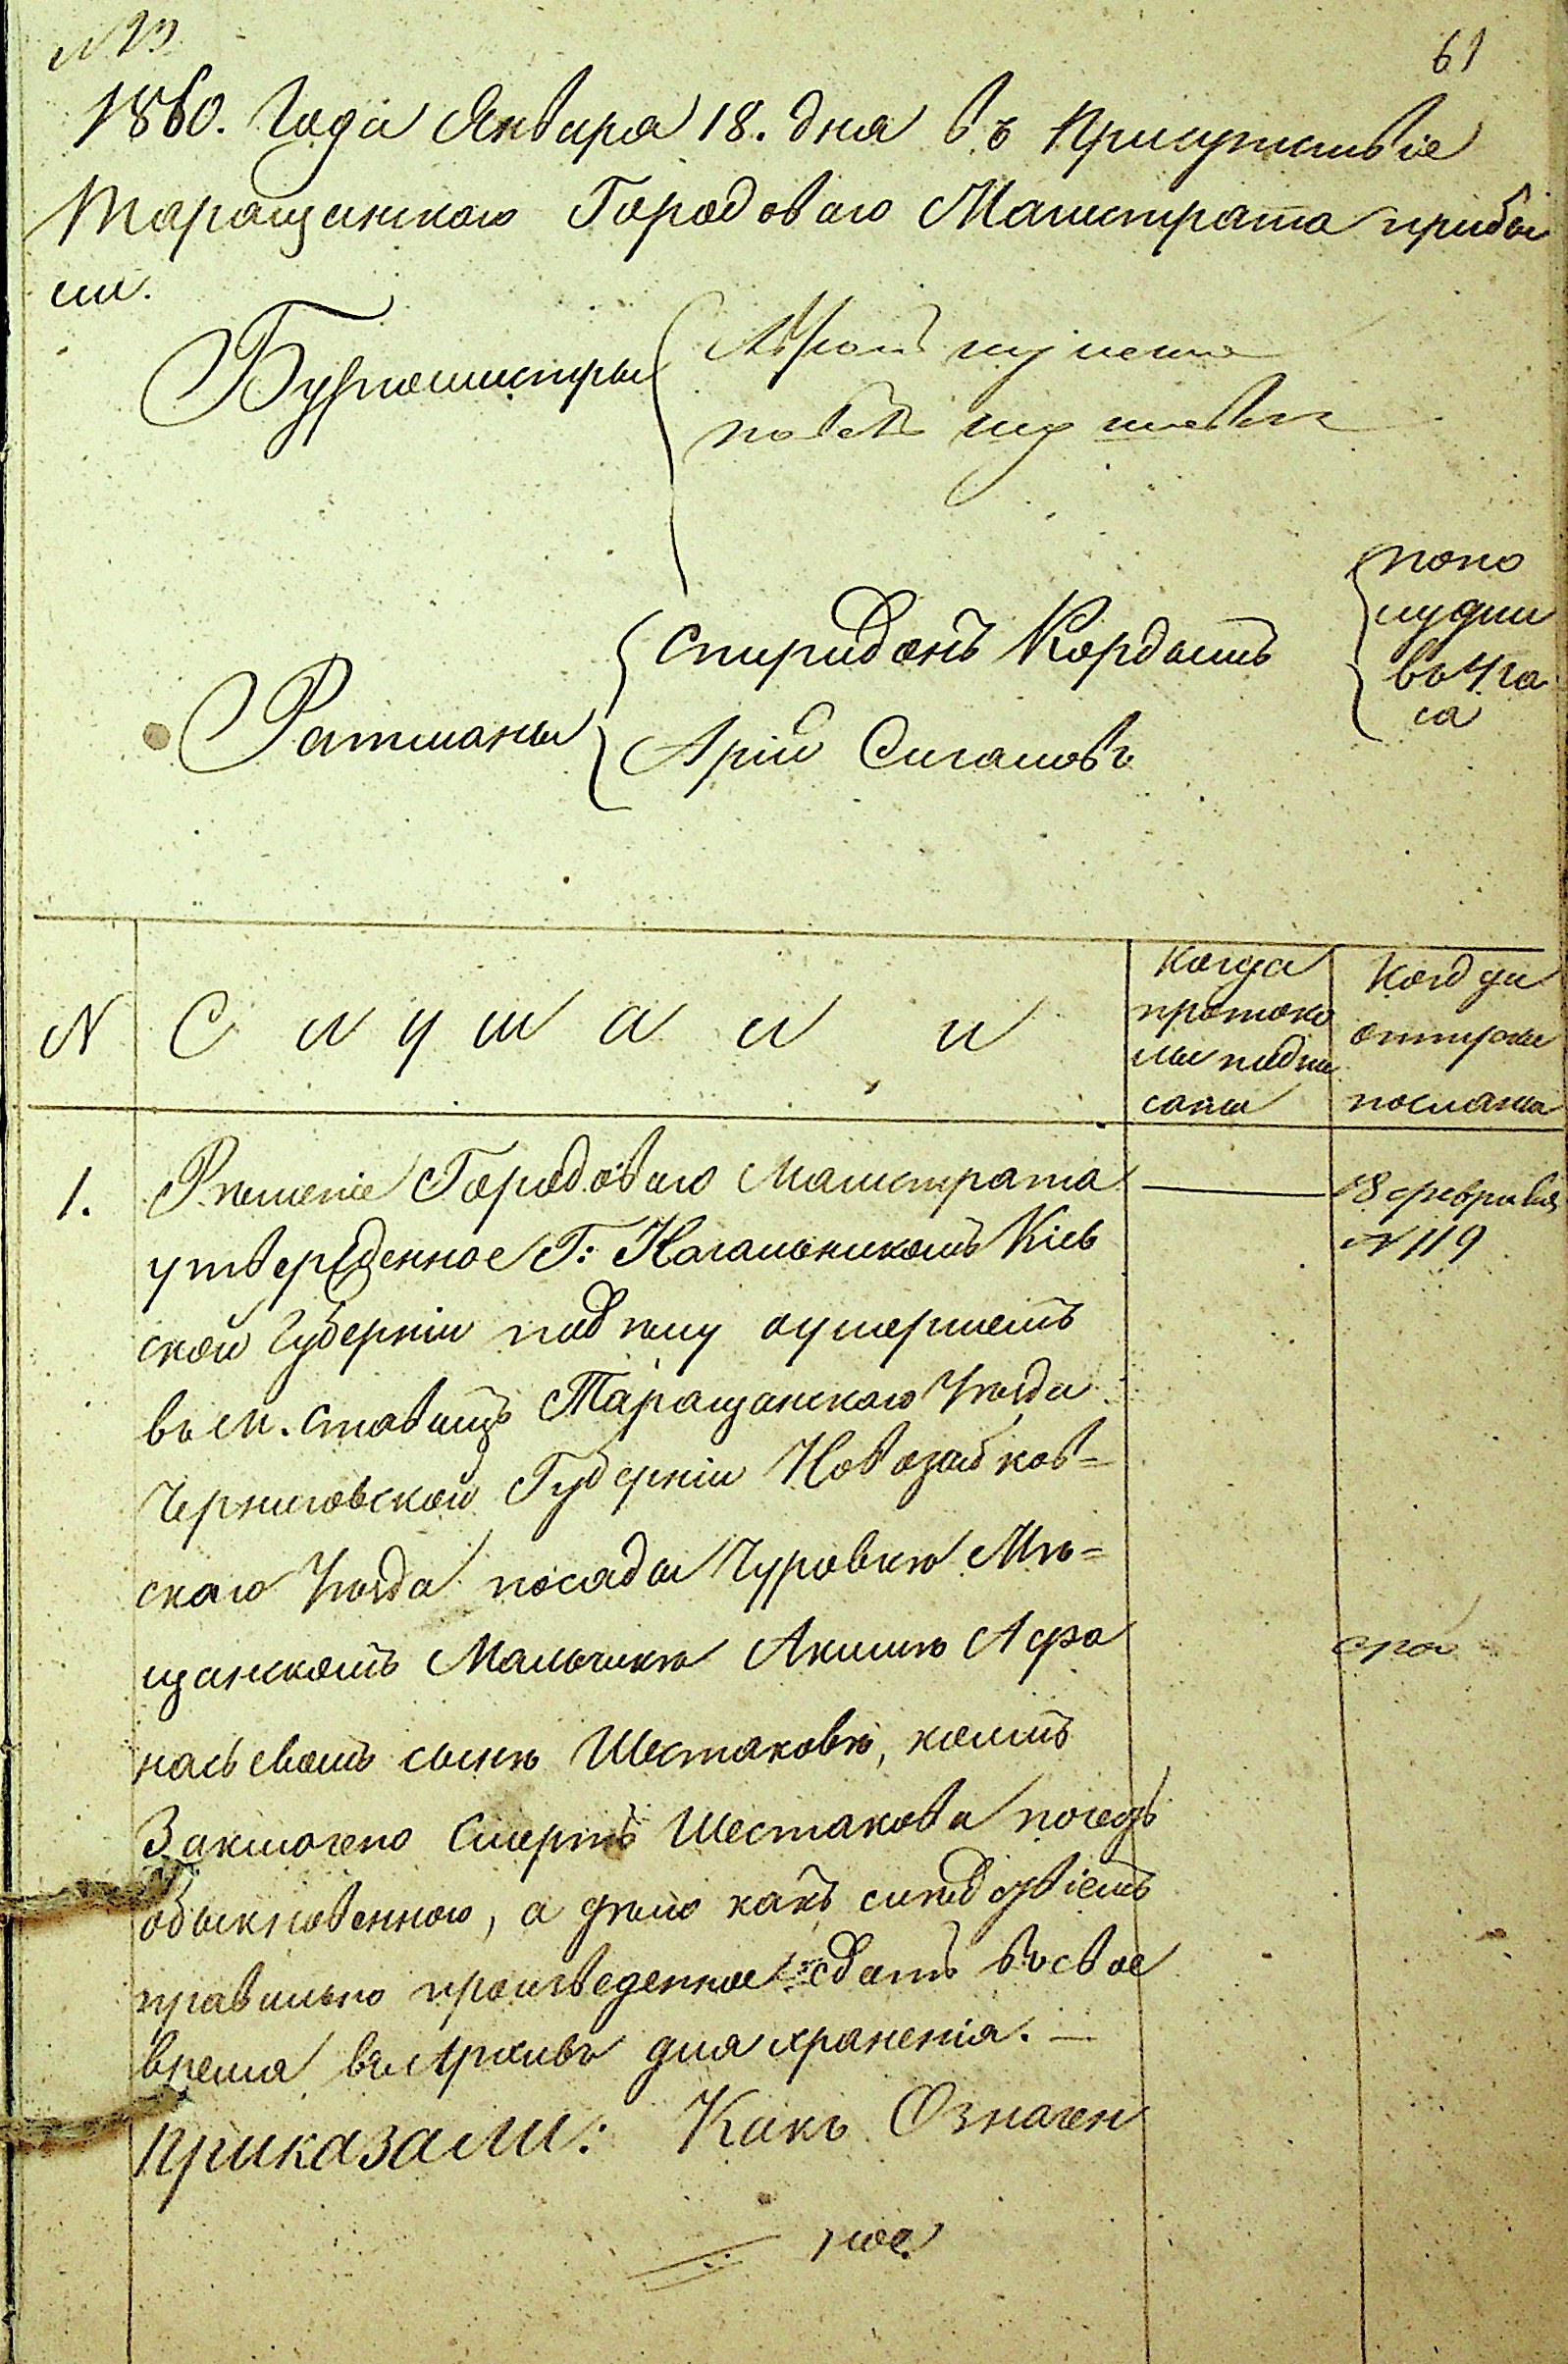 61
1860. Года Января 18. дня въ Присутствіе
Таращанского Городоваго Магистрата прибы
ли.
Бургомистры
Ратманы
Спиридонъ Кордашъ
Арій Сигаловъ
попо
лудни
въ 4 ча
са
N
Слушали
Когда
протоко
лы подпи
саны
Когда
отпуски
посланы
1.
Рѣшеніе Городоваго Магистрата
утвержденное Г: Начальникомъ Кіев
ской Губерніи по дѣлу о умершемъ
въ м. Ставищѣ Таращанскаго Уѣзда
Черниговской Губерніи Новозыбков=
скаго Уѣзда посада Чуровки Мѣ=
щанскомъ Мальчикѣ Акимѣ Афа
насьевомъ сынѣ Шестаковѣ, коимъ
Заключено Смерть Шестакова
обыкновенною, а дѣло какъ
правильно произведенное сдать въ свое
время въ Архивъ для храненія. —
18 февраля
N 119
Приказали: Какъ Означен
ное